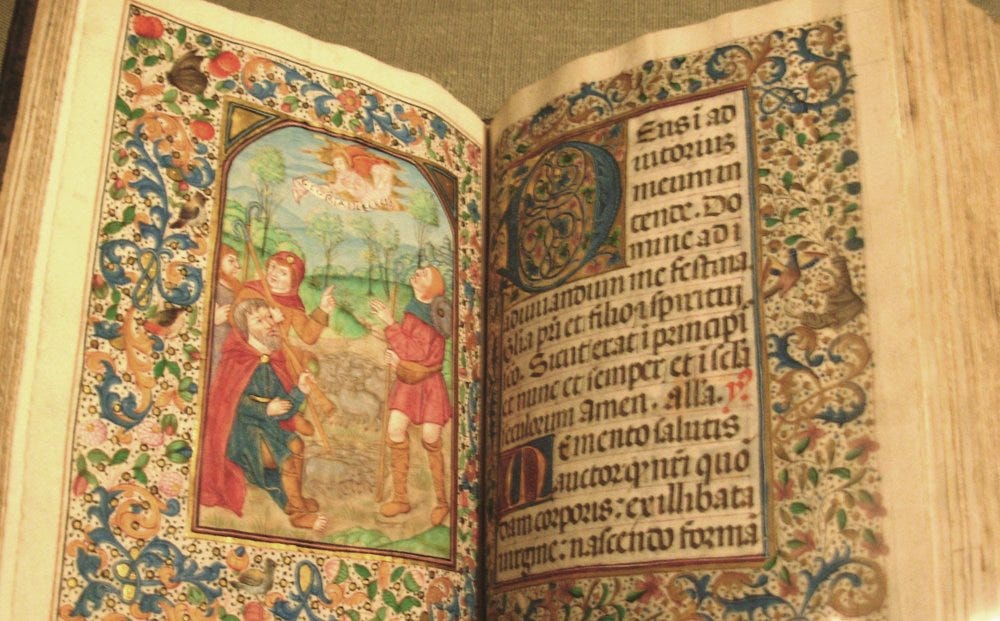 Eus i ad
iutoriuz
meum in
tende. Do
mine ad i
adiuuandum me festina
Glia pri et filio i spiritui
sco. Sicut erat i principi
et nunc et semper et i secla
seculorum Amen. Alla.
Memento salutis
auctor q nri quo
dam corporis: ex illibata
uirgine: nascendo formã